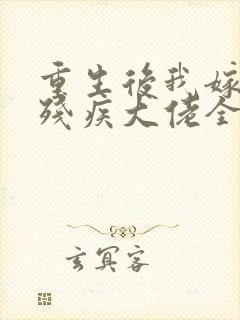 重生後我嫁
殘疾大佬全
玄冥客